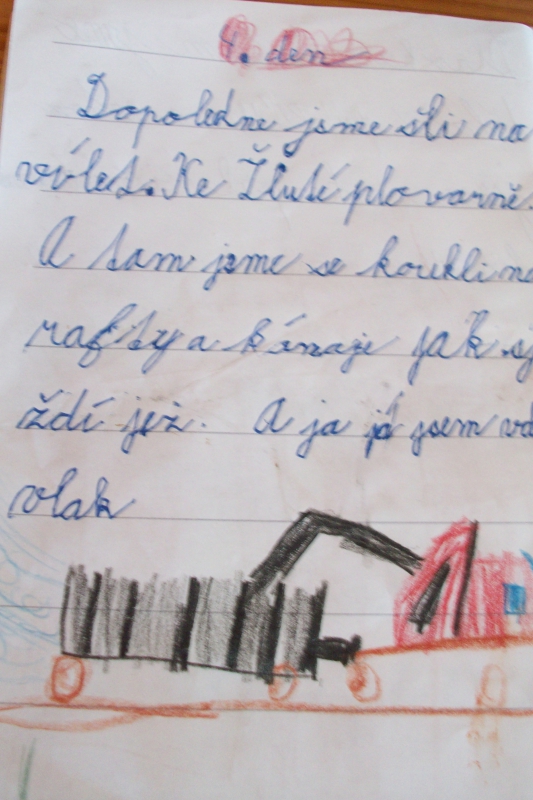 4. den
Dopoledne jsme šli na
výlet. Ke Žluté plovarně.
A tam jsme se koukli na
rafty a kánaje jak sj
ždí jez. A ja já jsem vd
vlak